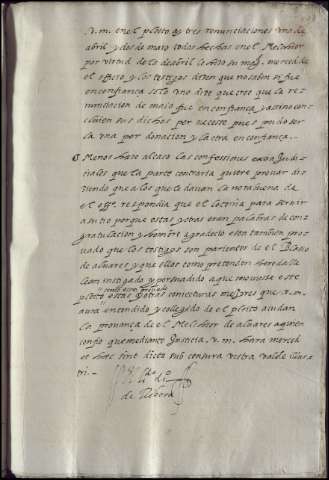 v. m. en el pleito ay tres renunciaciones una de
abril y dos de maio todas hechas en el Melchior
por virtud de la de abril le hizo su mag. merced de
el officio y los testigos dizen que no saben si fue
en confiança solo uno dize que creo que la re
nunciacion de maio fue en confiança y assi no con
cluien sus dichos por necesse pues pudo ser
la una por donacion y la otra en confiança.
Menos haze al caso las confessiones extra judi
ciales que la parte contraria quiere provar di
ziendo que a los que le davan la norabuena de
el offo. respondia que el lo tenia para servir
a su tio porque estas y otras son palabras de con
gratulacion y hombre agradecido esta tambien pro
vado que los testigos son parientes de el
de alvarez y que ellos como pretenden heredalle
le an instigado y persuadido a que moviesse este
pleito estas y otras conjecturas mejores que v. m.
aura entendido y collegido de el pleito ayudan
la provança de el Melchior de alvarez a quien
confio que mediante Justicia. v. m. hara merced
et haec sint dicta sub censura vestra valde illus
tri.
de Ribera